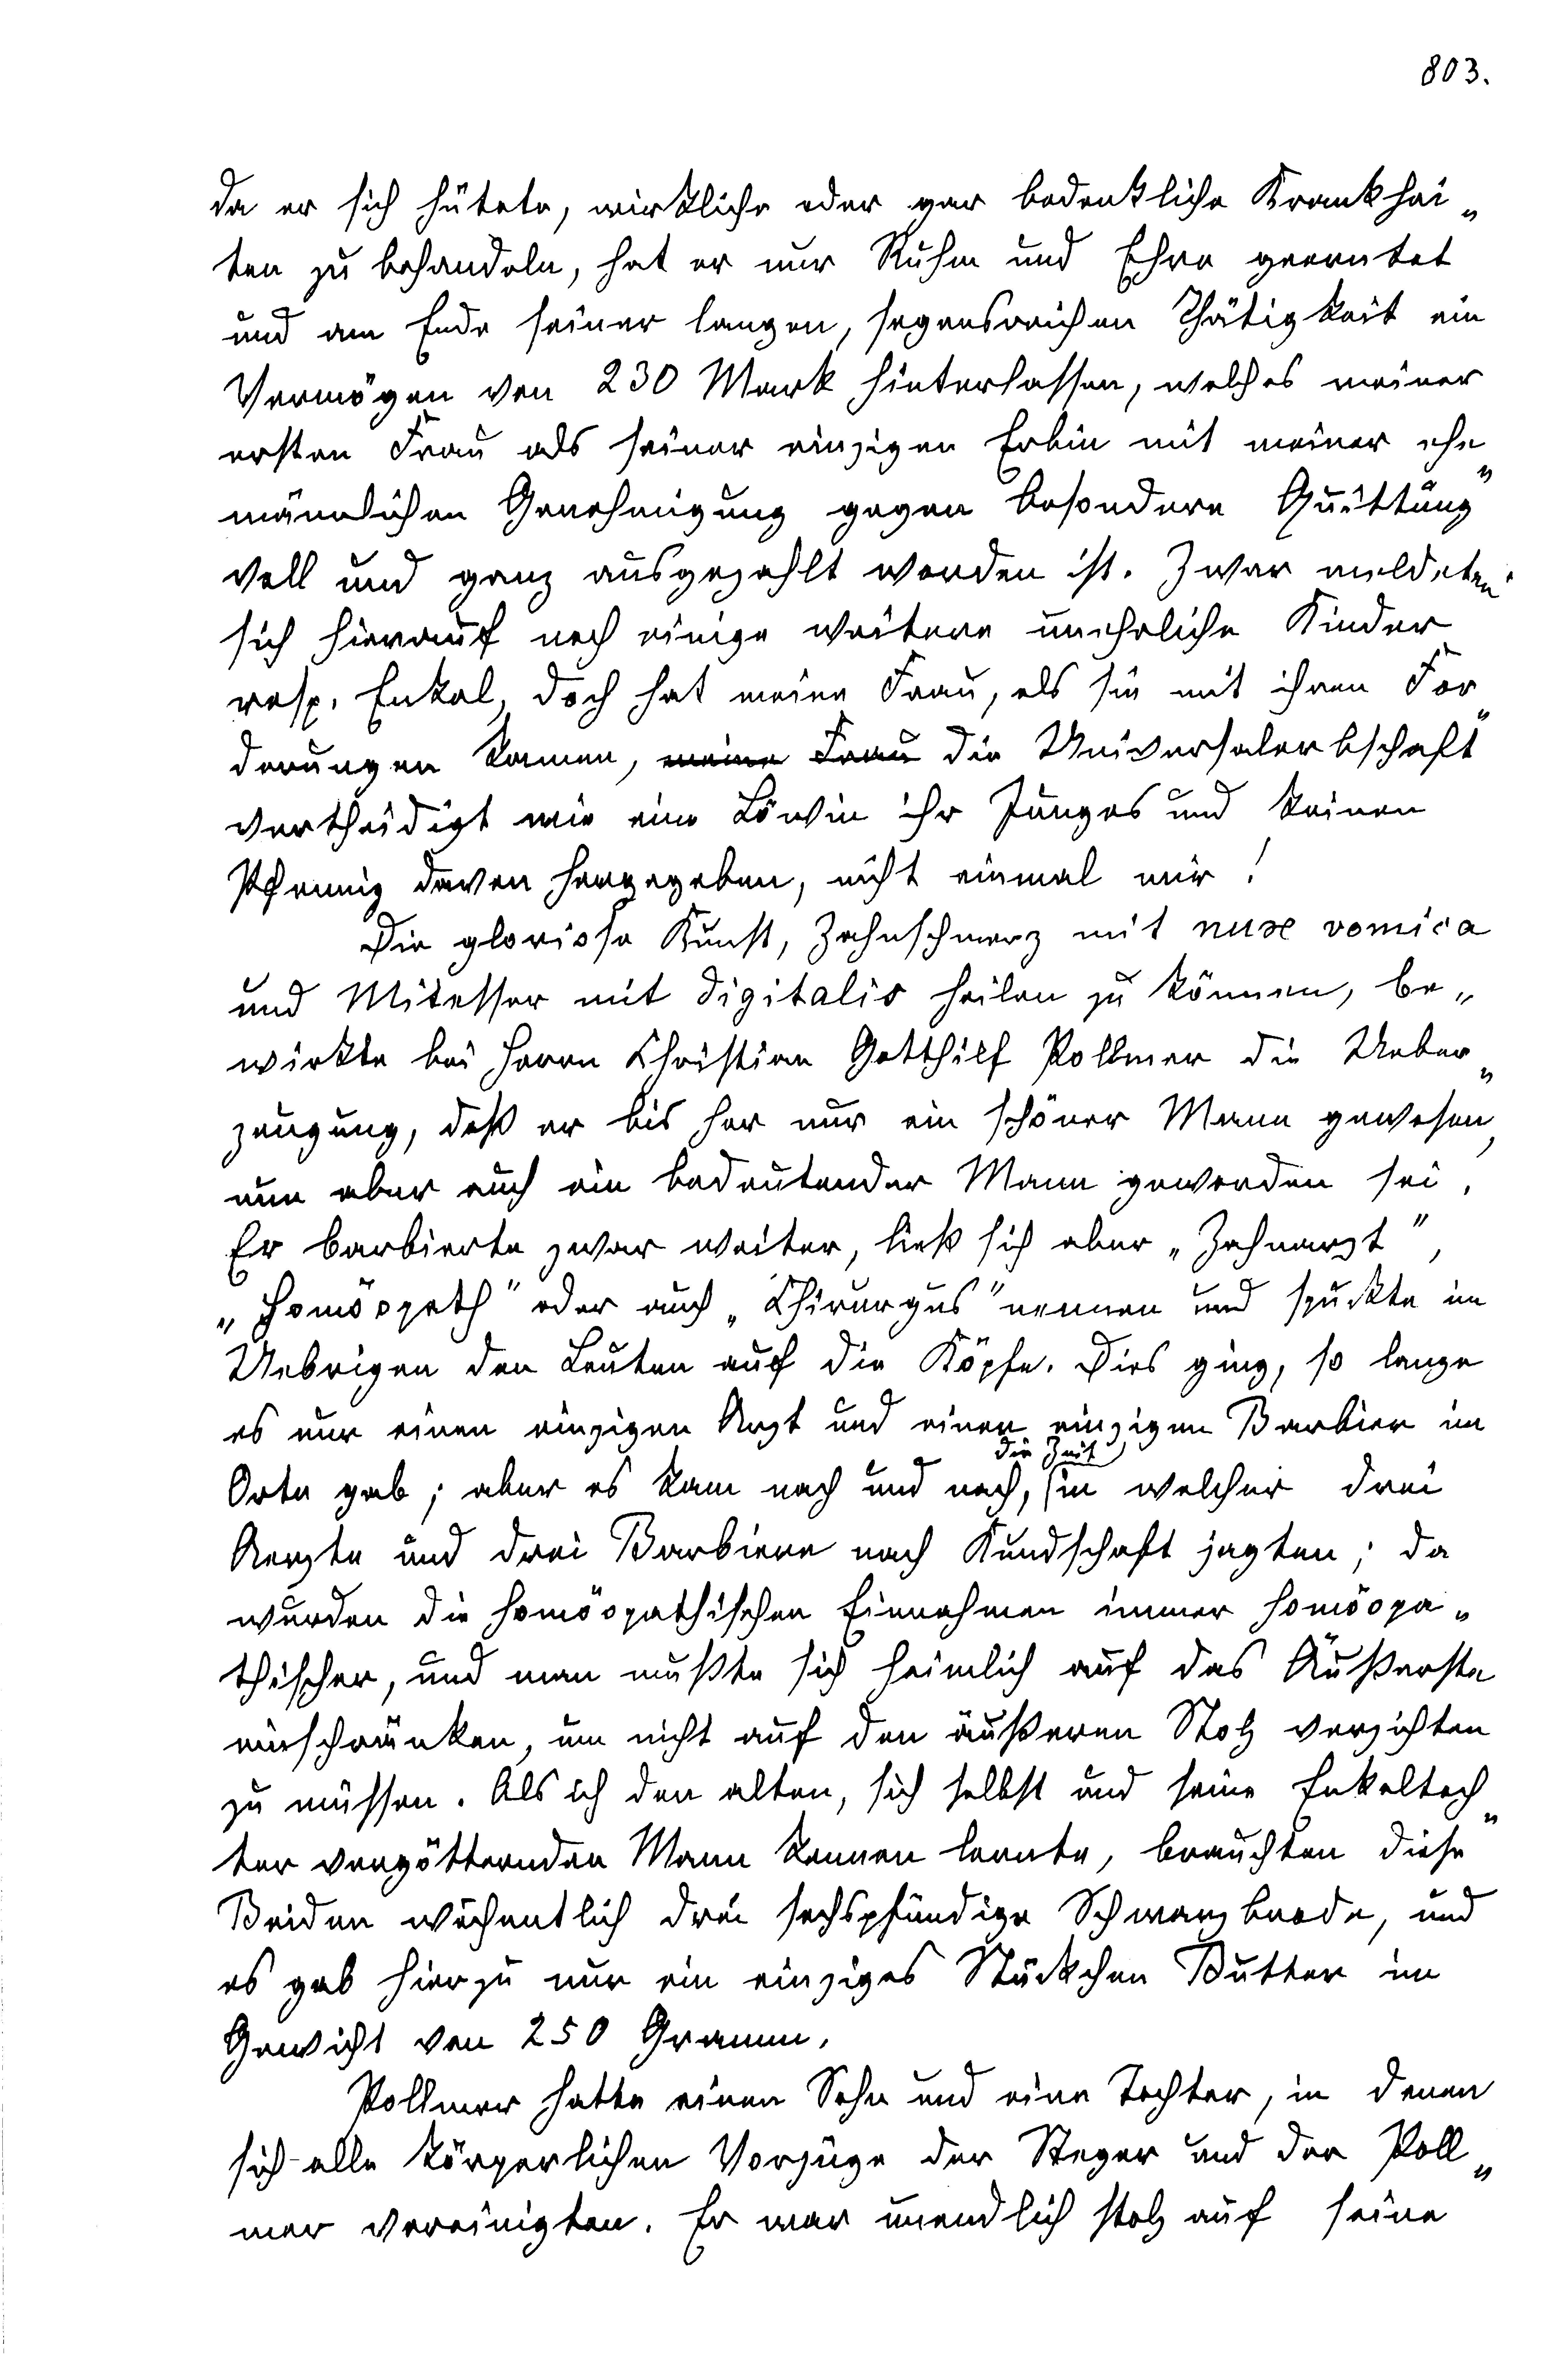 803.
da er sich hütete, wirkliche oder gar bedenkliche Krankhei„
ten zu behandeln, hat er nur Ruhm und Ehre geerntet
und am Ende seiner langen, segensreichen Thätigkeit ein
Vermögen von 230 Mark hinterlassen, welches meiner
ersten Frau als seiner einzigen Erbin mit meiner ehe„
männlichen Genehmigung gegen besondere Quittung
voll und ganz ausgezahlt worden ist. Zwar meldeten
sich hierauf noch einige weitere unehrliche Kinder
resp. Enkel, doch hat meine Frau, als sie mit ihren For„
derungen kamen, meine Frau die Universalerbschaft
vertheidigt wie eine Löwin ihr Junges und keinen
Pfennig davon hergegeben, nicht einmal mir!
Die gloriose Kunst, Zahnschmerz mit nux vomica
und Mitesser mit digitalis heilen zu können, be„
wirkte bei Herrn Christian Gotthilf Pollmer die Ueber„
zeugung, daß er bis her nur ein schöner Mann gewesen,
nun aber auch ein bedeutender Mann geworden sei.
Er barbierte zwar weiter, ließ sich aber „Zahnarzt",
„Homöopath" oder auch „Chirurgus" nennen und spuckte im
Uebrigen den Leuten auf die Köpfe. Dies ging, so lange
es nur einen einzigen Arzt und einen einzigen Barbier im
Orte gab; aber es kam nach und nach, die Zeit in welcher drei
Aerzte und drei Barbiere nach Kundschaft jagten; da
wurden die homöopathischen Einnahmen immer homöopa„
thischer, und man mußte sich heimlich auf das Äußerste
einschränken, um nicht auf den äußeren Stolz verzichten
zu müssen. Als ich den alten, sich selbst und seine Enkeltoch„
ter vergötternden Mann kennen lernte, brauchten diese
Beiden wöchentlich drei sechspfündige Schwarzbrode, und
es gab hierzu nur ein einziges Stückchen Butter im
Gewicht von 250 Gramm.
Pollmer hatte einen Sohn und eine Tochter, in denen
sich alle körperlichen Vorzüge der Steger und der Poll„
mer vereinigten. Er war unendlich stolz auf seine